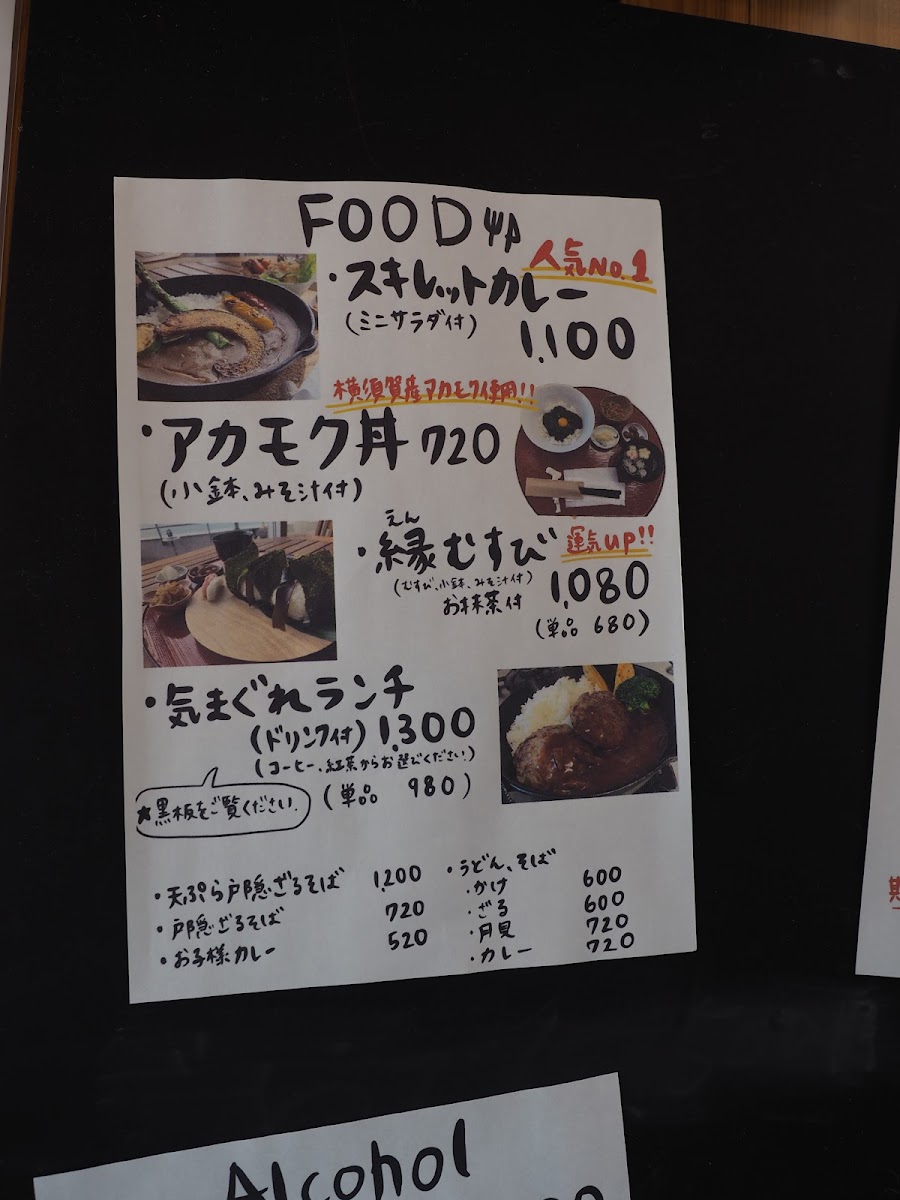 FOOD
人気No.1
・スキレットカレー
(ミニサラダ付) 1,100
横須賀産アカモク使用!!
・アカモク丼 720
(小鉢、みそ汁付)
えん
・縁むすび 運気up!!
(むすび、小鉢、みそ汁付) 1,080
お抹茶付
(単品 680)
・気まぐれランチ
(ドリンク付) 1,300
(コーヒー、紅茶からお選びください。)
(単品 980)
★黒板をご覧ください。
・天ぷら戸隠ざるそば 1,200
・戸隠ざるそば 720
・お子様カレー 520
・うどん、そば
・かけ 600
・ざる 600
・月見 720
・カレー 720
Alcohol